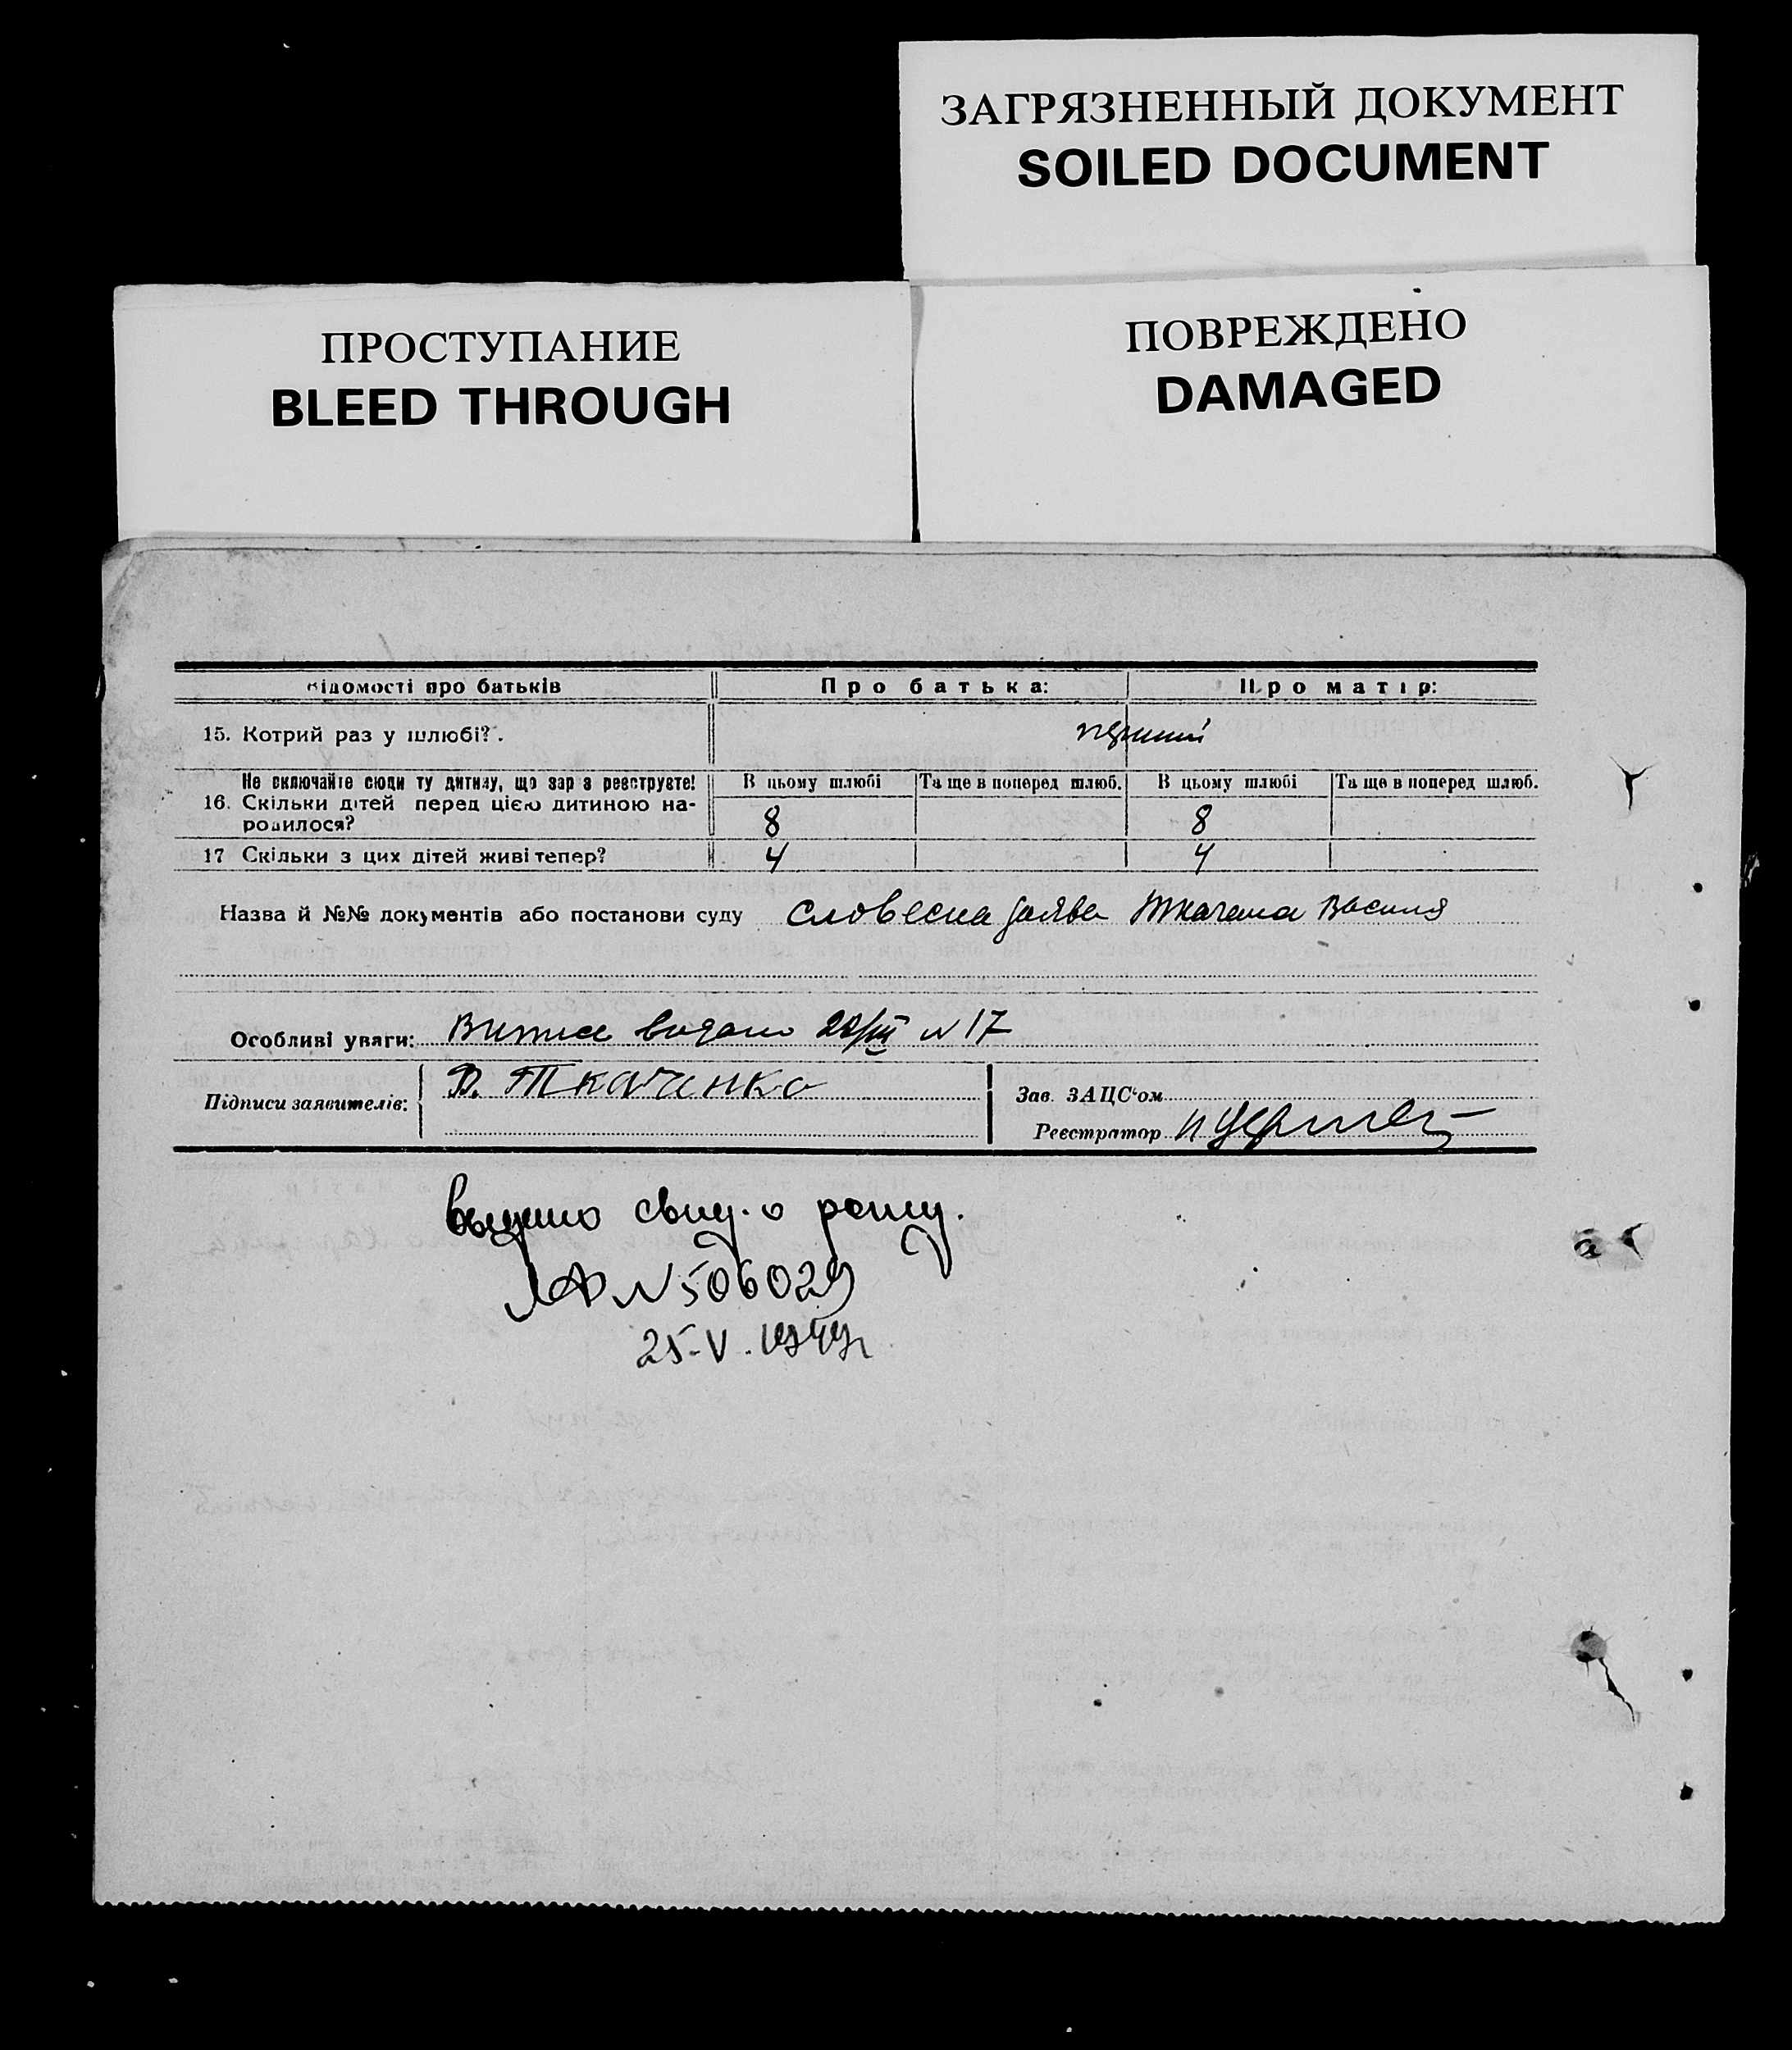 ЗАГРЯЗНЕННЫЙ ДОКУМЕНТ
SOILED DOCUMENT
ПРОСТУПАНИЕ
BLEED THROUGH
ПОВРЕЖДЕНО
DAMAGED
відомості про батьків Про батька: Про матір:
15. Котрий раз у шлюбі? перший
Не включайте сюди ту дитину, що зараз реєструєте! В цьому шлюбі Та ще в поперед шлюб. В цьому шлюбі Та ще в поперед шлюб.
16. Скільки дітей перед цією дитиною на-
родилося? 8 8
17 Скільки з цих дітей живі тепер? 4 4
Назва й №№ документів або постанови суду словесна заява Ткаченка Василя
Особливі уваги: Витяг видано 20/III N 17
Підписи заявителів: В. Ткаченко
Зав. ЗАЦС'ом
Реєстратор
выдано свид. о рожд.
N 506029
25-V.1949г